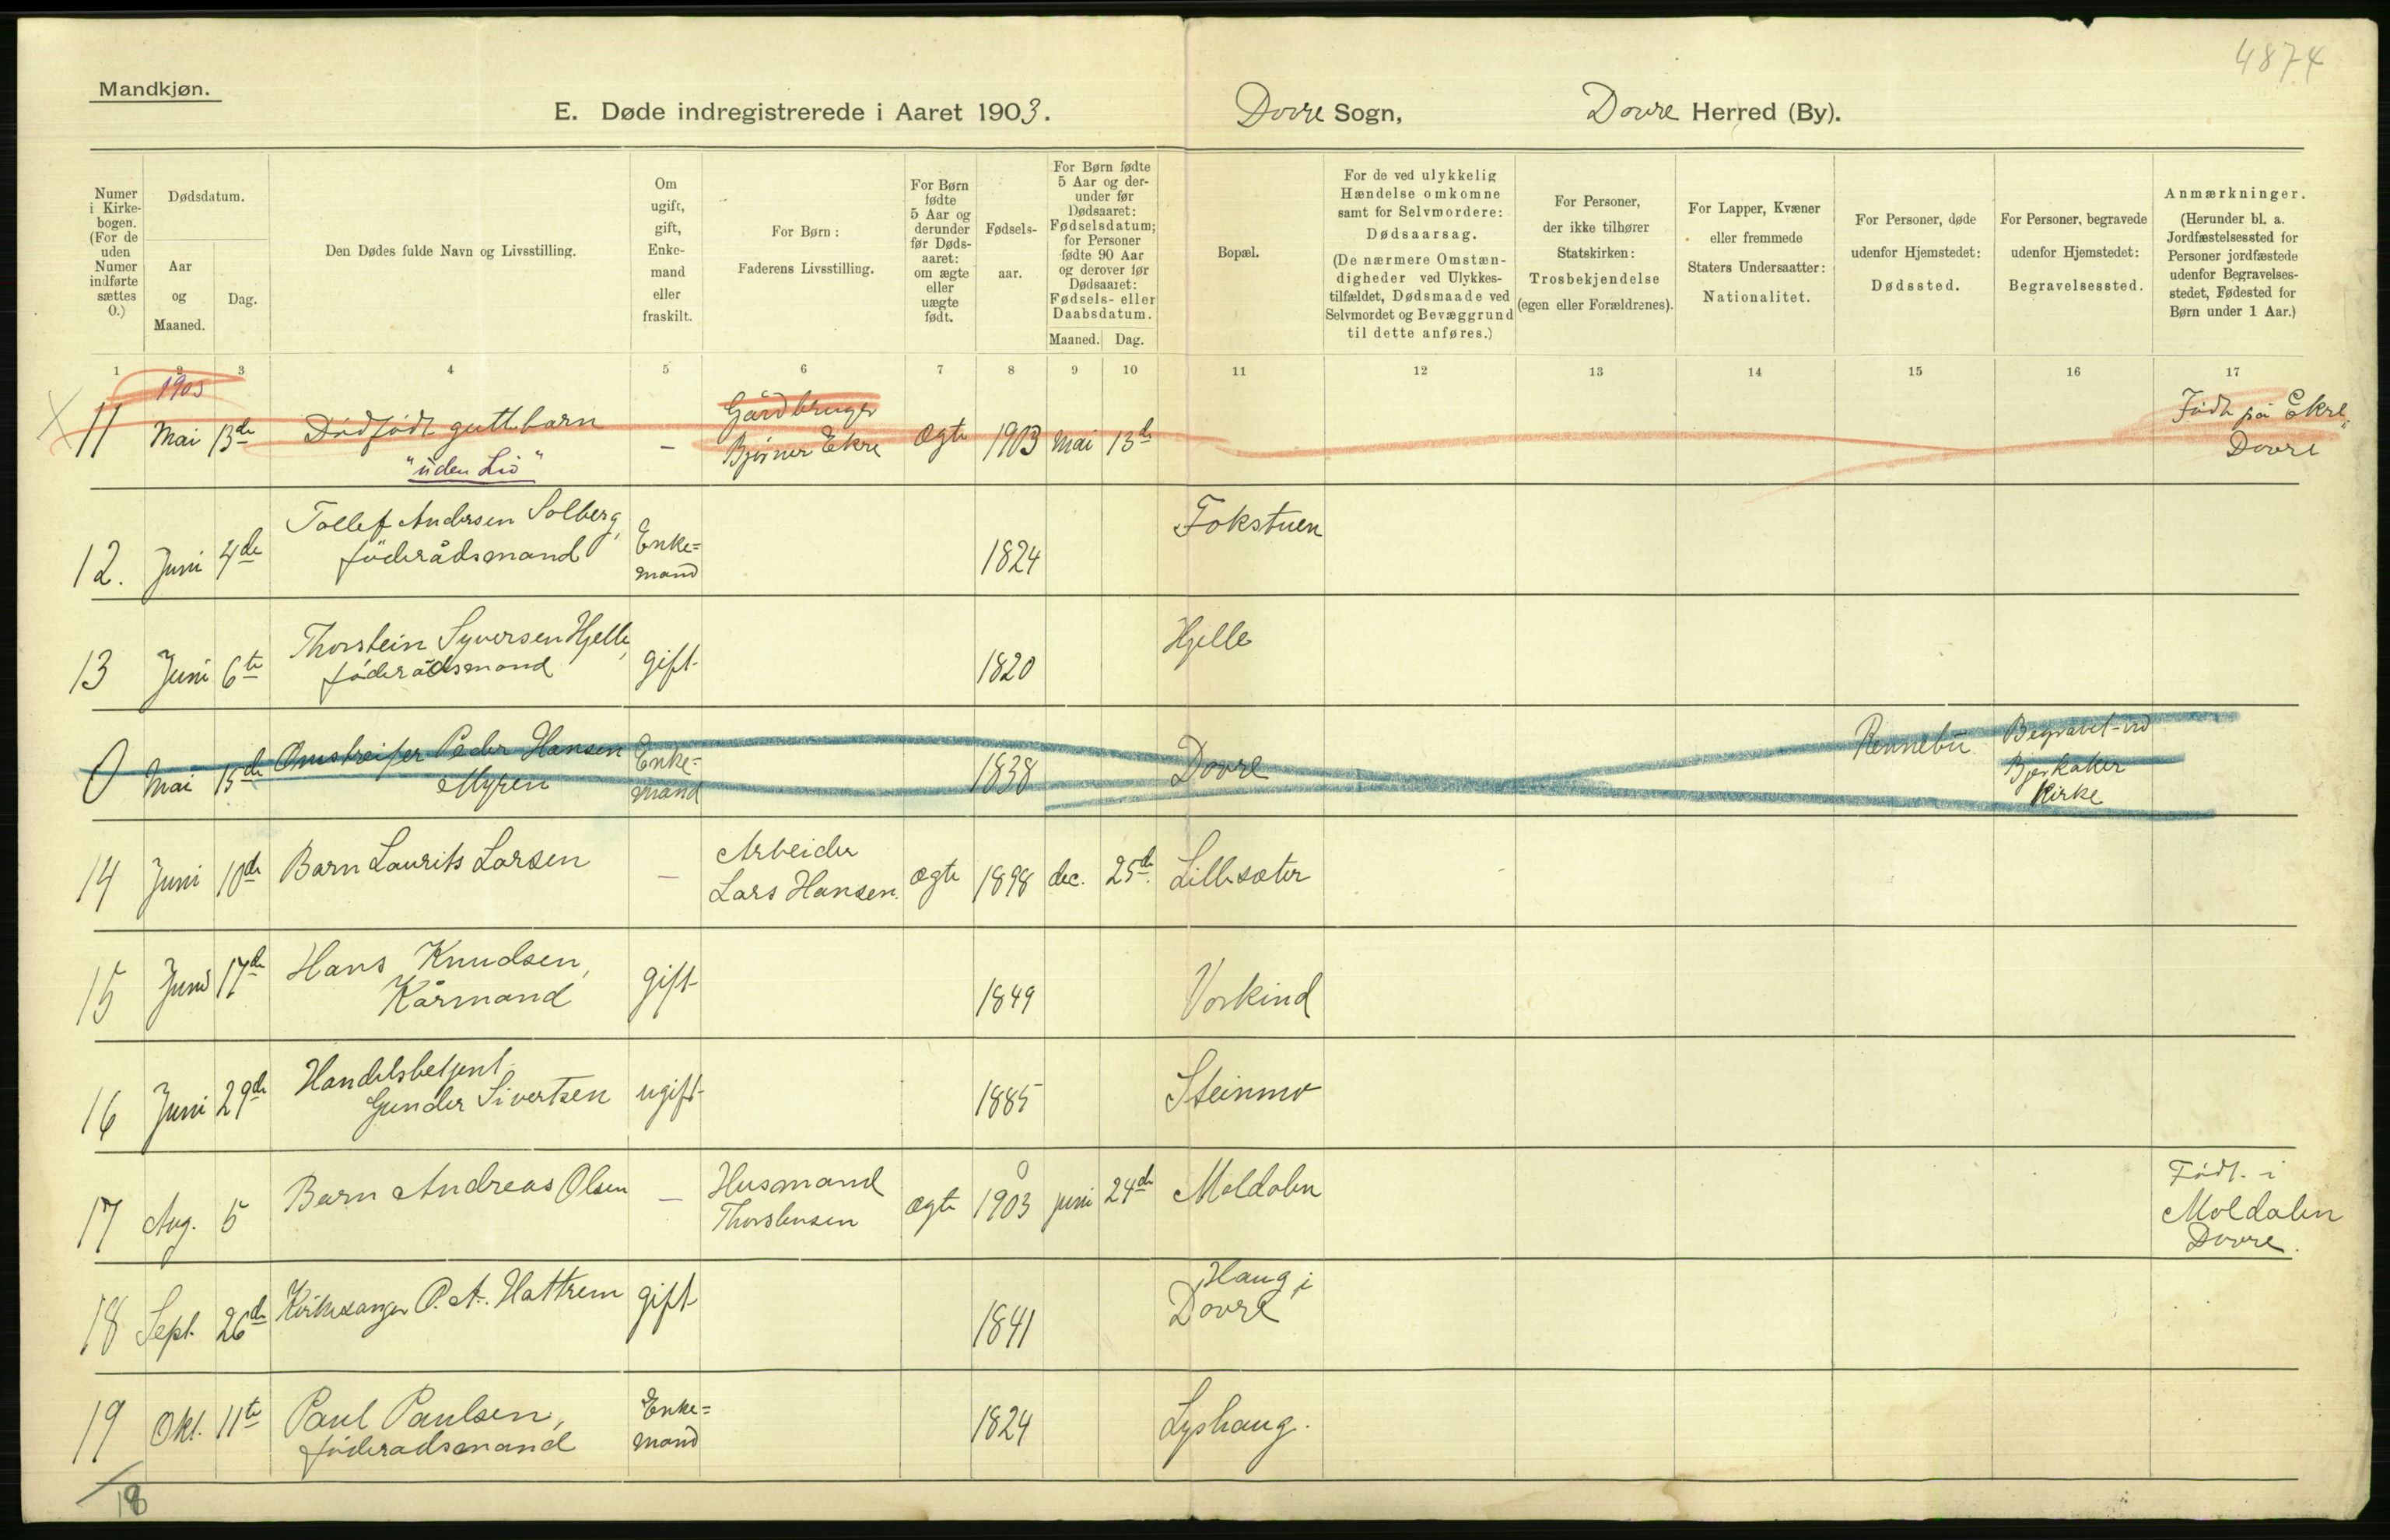 4874
Mandkjøn.
E. Døde indregistrerede i Aaret 1903.
Dovre Sogn,
Dovre Herred (By).
Numer i Kirke-bogen. (For de uden Numer indførte sættes 0.)
Dødsdatum.
Aar og Maaned.
Dag.
Den Dødes fulde Navn og Livsstilling.
Om ugift, gift, Enke-mand eller fraskilt.
For Børn: Faderens Livsstilling.
For Børn fødte 5 Aar og derunder før Døds-aaret: om ægte eller uægte født.
Fødsels-aar.
For Børn fødte 5 Aar og der-under før Dødsaaret: Fødselsdatum; for Personer fødte 90 Aar og derover før Dødsaaret: Fødsels- eller Daabsdatum.
Maaned. Dag.
Bopæl.
For de ved ulykkelig Hændelse omkomne samt for Selvmordere: Dødsaarsag. (De nærmere Omstæn-digheder ved Ulykkes-tilfældet, Dødsmaade ved Selvmordet og Bevæggrund til dette anføres.)
For Personer, der ikke tilhører Statskirken: Trosbekjendelse (egen eller Forældrenes).
For Lapper, Kvæner eller fremmede Staters Undersaatter: Nationalitet.
For Personer, døde udenfor Hjemstedet: Dødssted.
For Personer, begravede udenfor Hjemstedet: Begravelsessted.
Anmærkninger. (Herunder bl. a. Jordfæstelsessted for Personer jordfæstede udenfor Begravelses-stedet, Fødested for Børn under 1 Aar.)
1 2 3 4 5 6 7 8 9 10 11 12 13 14 15 16 17
1903
11 Mai 13de Dødfødt guttebarn "uden Liv" – Gårdbruger Bjørner Ekre ægte 1903 Mai 13de Født på Ekre, Dovre
12. Juni 4de Tollef Andersen Solberg, føderådsmand Enke=mand 1824 Fokstuen
13 Juni 6te Thorstein Syversen Hjelle, føderådsmand gift 1820 Hjelle
0 Mai 15de Omstreifer Peder Hansen Myren Enke=mand 1838 Dovre Rennebu Begravet ved Bjerkaker Kirke
14 Juni 10de Barn Laurits Larsen – Arbeider Lars Hansen. ægte 1898 dec. 25de. Lillesæter
15 Juni 17de Hans Knudsen, Kårmand gift 1849 Vorkind
16 Juni 29de Handelsbetjent Gunder Sivertsen ugift 1885 Steinmo
17 Aug. 5 Barn Andreas Olsen – Husmand Thorstensen ægte 1903 juni 24de Moldalen Født i Moldalen Dovre.
18 Sept. 26de Kirkesanger O. A. Hattrem gift 1841 Haug i Dovre
19 Okt. 11te Paul Paulsen, føderadsmand Enke=mand 1824 Lyshaug.
18